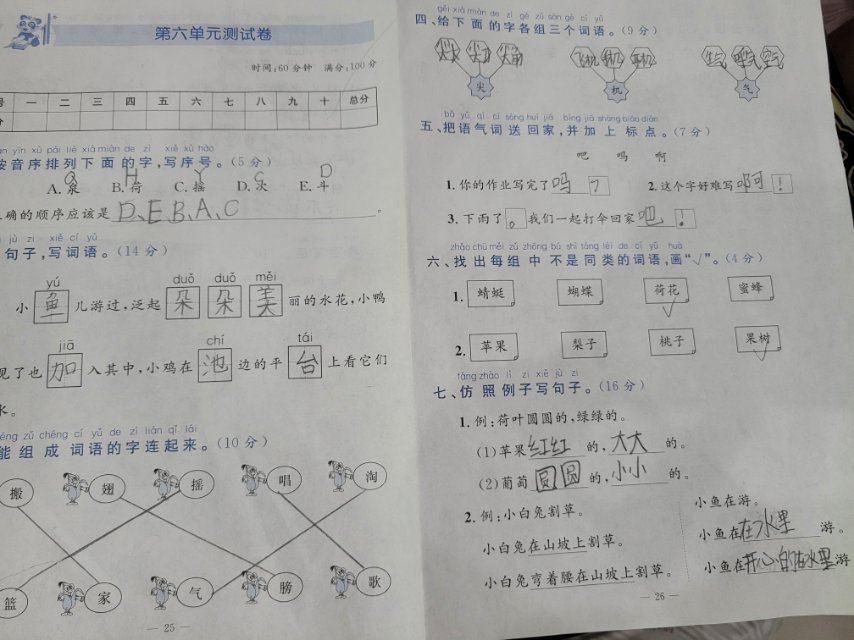 第六单元测试卷
时间:60分钟 满分:100分
号 一 二 三 四 五 六 七 八 九 十 总分
分
àn yīn xù pái liè xià miàn de zì xiě xù hào
按音序排列下面的字,写序号。(5分)
Q H Y C D
A.泉 B.荷 C.摇 D.次 E.斗
确的顺序应该是 D、E、B、A、C 。
jù zi xiě cí yǔ
句子,写词语。(14分)
yú duǒ duǒ měi
小鱼儿游过,泛起朵朵美丽的水花,小鸭
jiā chí tái
见了也加入其中,小鸡在池边的平台上看它们
水。
néng zǔ chéng cí yǔ de zì lián qǐ lái
能组成词语的字连起来。(10分)
搬 翅 摇 唱 淘
篮 家 气 膀 歌
— 25 —
gěi xià miàn de zì gè zǔ sān gè cí yǔ
四、给下面的字各组三个词语。(9分)
飞机
尖 机 气
bǎ yǔ qì cí sòng huí jiā bìng jiā shàng biāo diǎn
五、把语气词送回家,并加上标点。(7分)
吧 吗 啊
1.你的作业写完了吗? 2.这个字好难写啊!
3.下雨了。我们一起打伞回家吧!
zhǎo chū měi zǔ zhōng bú shì tóng lèi de cí yǔ huà
六、找出每组中不是同类的词语,画“√”。(4分)
1. 蜻蜓 蝴蝶 荷花 蜜蜂
√
2. 苹果 梨子 桃子 果树
√
fǎng zhào lì zi xiě jù zi
七、仿照例子写句子。(16分)
1.例:荷叶圆圆的,绿绿的。
(1)苹果红红的,大大的。
(2)葡萄圆圆的,小小的。
2.例:小白兔割草。
小白兔在山坡上割草。
小白兔弯着腰在山坡上割草。
小鱼在游。
小鱼在在水里游。
小鱼在开心的在水里游
— 26 —